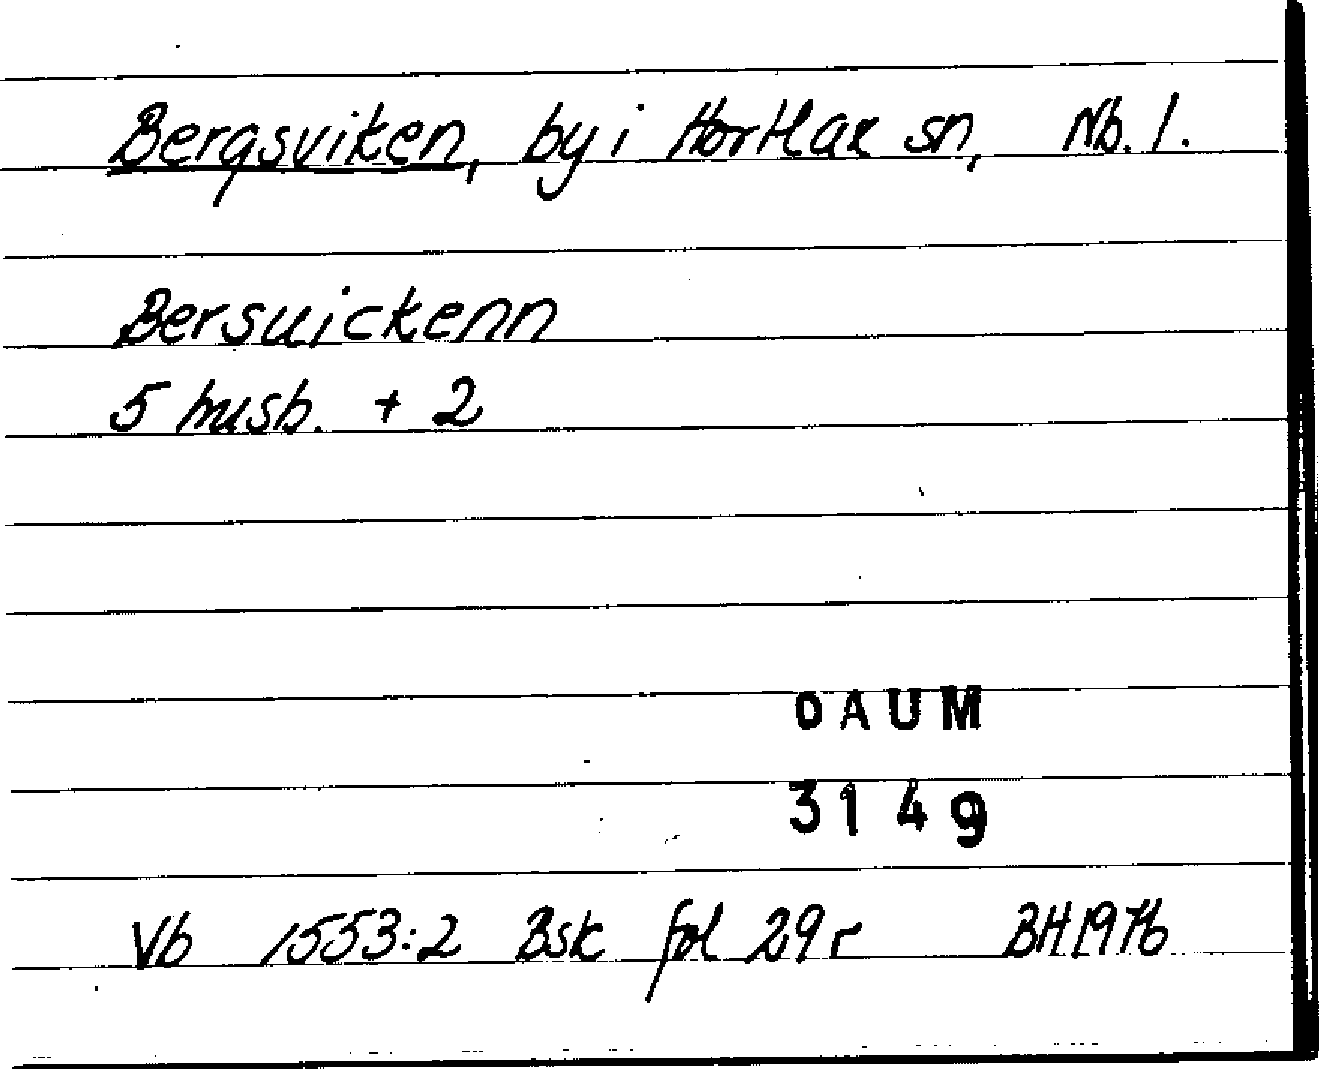 Bergsviken, by i Hortlax sn, Nb. l.
Bersuickenn
5 husb. + 2
OAUM
3149
Vb 1553:2 Bsk fol 29 r BH 1976